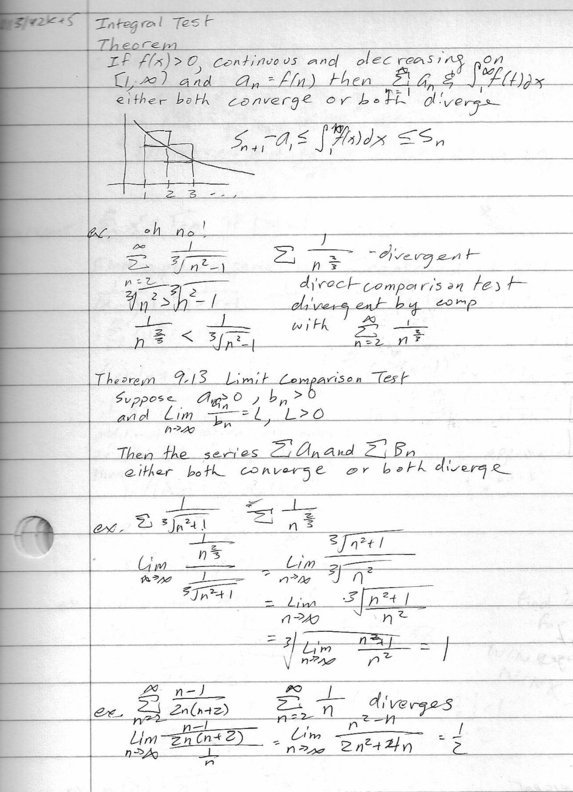 Integral Test
Theorem
If f(x)>0, continuous and decreasing on
[1,∞) and aₙ = f(n) then ∞Σn=1 aₙ & ∫₁^∞ f(t)dx
either both converge or both diverge
Sₙ₊₁ - a₁ ≤ ∫₁ f(x)dx ≤ Sₙ
1 2 3 ...
ex. oh no!
∞Σn=2 1/∛(n²-1) Σ 1/n^(2/3) - divergent
∛n² > ∛(n²-1) direct comparison test
1/n^(2/3) < 1/∛(n²-1) divergent by comp
with ∞Σn=2 1/n^(2/3)
Theorem 9.13 Limit Comparison Test
Suppose aₙ>0, bₙ>0
and Lim n→∞ aₙ/bₙ = L, L>0
Then the series Σ aₙ and Σ Bₙ
either both converge or both diverge
ex. Σ 1/∛(n²+1) Σ 1/n^(2/3)
Lim n→∞ (1/n^(2/3))/(1/∛(n²+1)) = Lim n→∞ ∛(n²+1)/∛n²
= Lim n→∞ ∛((n²+1)/n²)
= ∛(Lim n→∞ (n²+1)/n²) = 1
ex. ∞Σn=2 (n-1)/(2n(n+2)) ∞Σn=2 1/n diverges
Lim n→∞ ((n-1)/(2n(n+2)))/(1/n) = Lim n→∞ (n²-n)/(2n²+4n) = 1/2